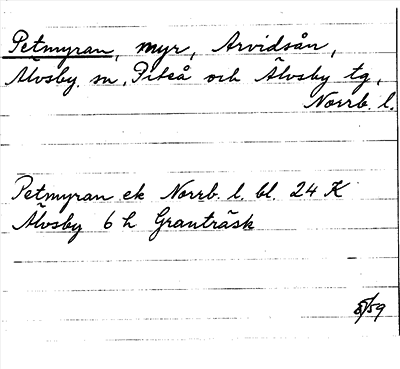 Petmyran, myr, Arvidsån,
Älvsby sn, Piteå och Älvsby tg,
Norrb. l.
Petmyran ek Norrb. l. bl. 24 K
Älvsby 6 h Granträsk
5/59